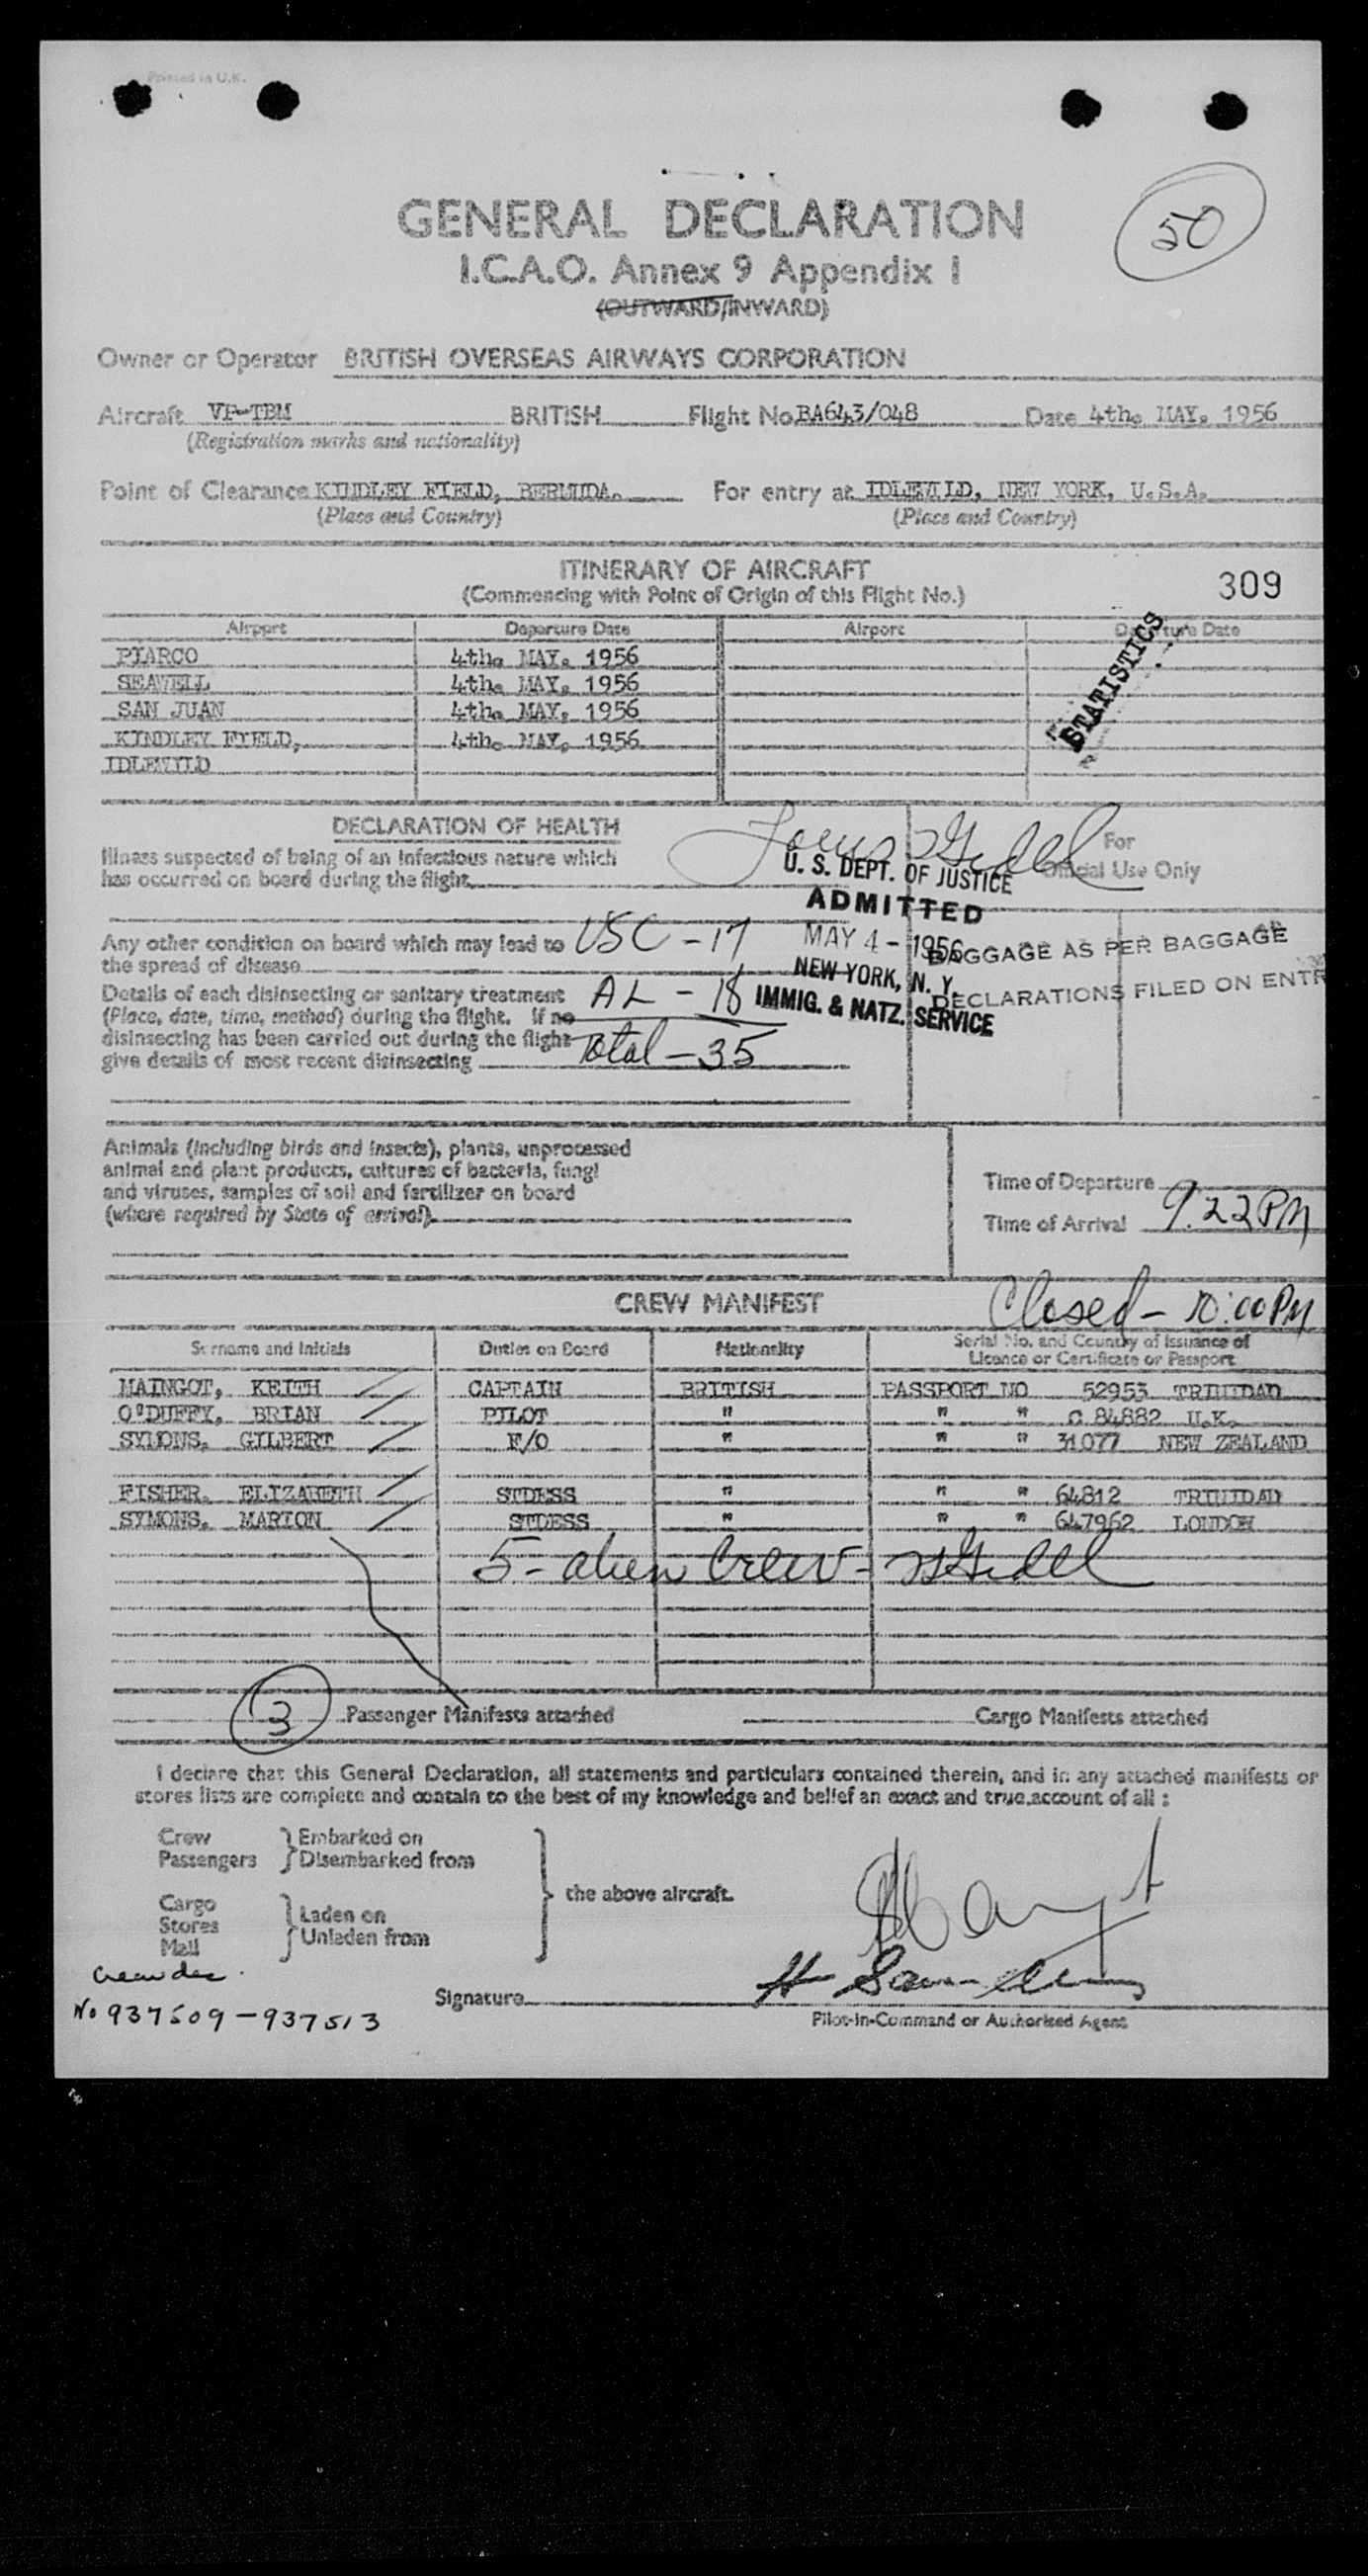 Printed in U.K.
50
GENERAL DECLARATION
I.C.A.O. Annex 9 Appendix I
(OUTWARD/INWARD)
Owner or Operator BRITISH OVERSEAS AIRWAYS CORPORATION
Aircraft VP-TBM BRITISH Flight No. BA643/048 Date 4th. MAY. 1956
(Registration marks and nationality)
Point of Clearance KINDLEY FIELD, BERMUDA. For entry at IDLEWILD, NEW YORK, U.S.A.
(Place and Country) (Place and Country)
ITINERARY OF AIRCRAFT
(Commencing with Point of Origin of this Flight No.)
309
Airport Departure Date Airport Departure Date
PIARCO 4th. MAY. 1956
SEAWELL 4th. MAY. 1956
SAN JUAN 4th. MAY. 1956
KINDLEY FIELD, 4th. MAY. 1956
IDLEWILD
STATISTICS
DECLARATION OF HEALTH
For
Official Use Only
Illness suspected of being of an infectious nature which
has occurred on board during the flight
U. S. DEPT. OF JUSTICE
ADMITTED
MAY 4 - 1956
NEW YORK, N. Y.
IMMIG. & NATZ. SERVICE
BAGGAGE AS PER BAGGAGE
DECLARATIONS FILED ON ENTR
Any other condition on board which may lead to USC - 17
the spread of disease
Details of each disinsecting or sanitary treatment AL - 18
(Place, date, time, method) during the flight. If no
disinsecting has been carried out during the flight Total - 35
give details of most recent disinsecting
Animals (including birds and insects), plants, unprocessed
animal and plant products, cultures of bacteria, fungi
and viruses, samples of soil and fertilizer on board
(where required by State of arrival)
Time of Departure
Time of Arrival 9.22 PM
Closed - 10:00 PM
CREW MANIFEST
Surname and Initials Duties on Board Nationality Serial No. and Country of Issuance of
Licence or Certificate or Passport
MAINGOT, KEITH CAPTAIN BRITISH PASSPORT NO 52953 TRINIDAD
O'DUFFY, BRIAN PILOT " " " C 84882 U.K.
SYMONS. GILBERT F/O " " " 31077 NEW ZEALAND
FISHER. ELIZABETH STDESS " " " 64812 TRINIDAD
SYMONS. MARION STDESS " " " 647962 LONDON
5 - alien Crew -
3 Passenger Manifests attached Cargo Manifests attached
I declare that this General Declaration, all statements and particulars contained therein, and in any attached manifests or
stores lists are complete and contain to the best of my knowledge and belief an exact and true account of all :
Crew Embarked on
Passengers Disembarked from
the above aircraft.
Cargo Laden on
Stores Unladen from
Mail
Crew dec.
No 937509 - 937513
Signature
Pilot-in-Command or Authorised Agent